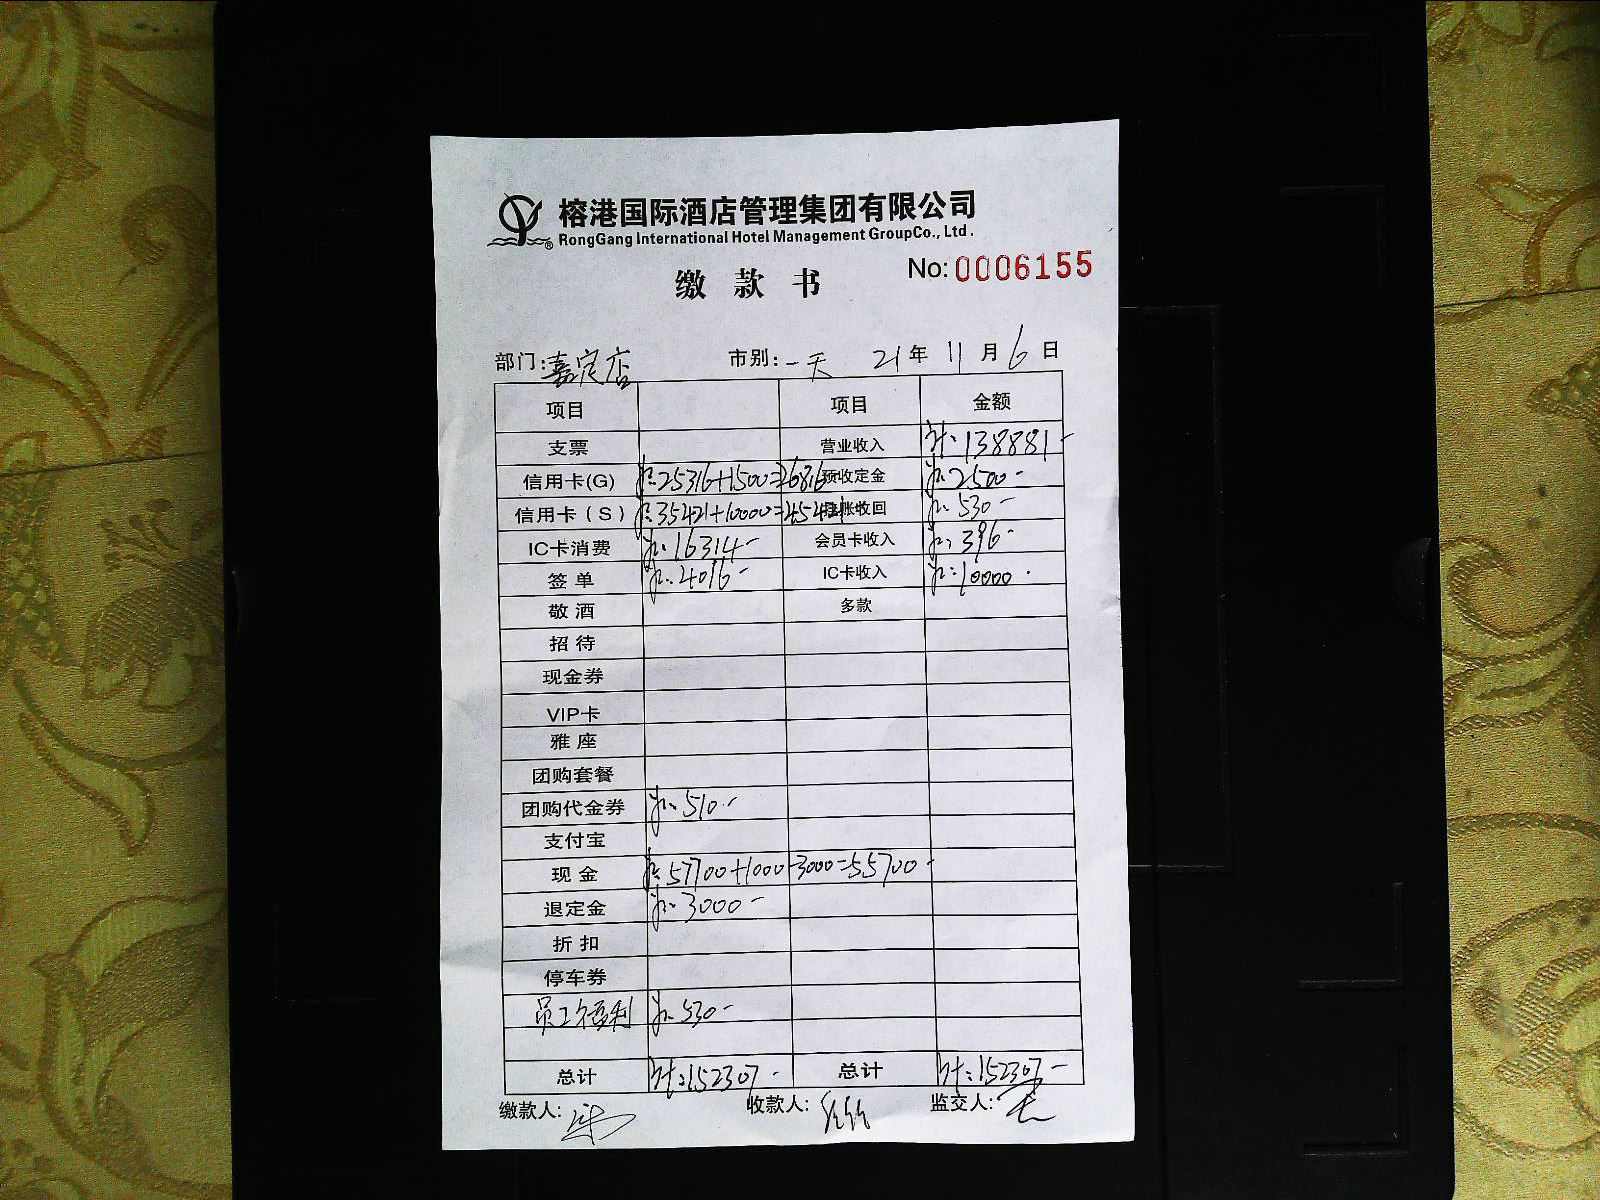 榕港国际酒店管理集团有限公司
RongGang International Hotel Management GroupCo., Ltd.
缴款书 No:0006155
部门:嘉定店 市别:一天 21年11月6日
项目 项目 金额
支票 营业收入 计:138881-
信用卡(G) 25316+1500=26816 预收定金 2500-
信用卡(S) 35421+10000=45421 挂账收回 530-
IC卡消费 16314- 会员卡收入 396-
签单 4016- IC卡收入 10000-
敬酒 多款
招待
现金券
VIP卡
雅座
团购套餐
团购代金券 510-
支付宝
现金 57700+1000-3000=55700-
退定金 3000-
折扣
停车券
员工福利 530-
总计 计:152307- 总计 计:152307-
缴款人: 收款人: 监交人: